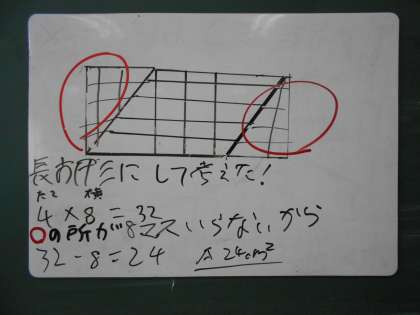 長方形にして考えた!
たて 横
4×8=32
○の所が8マスいらないから
32-8=24 A 24cm²